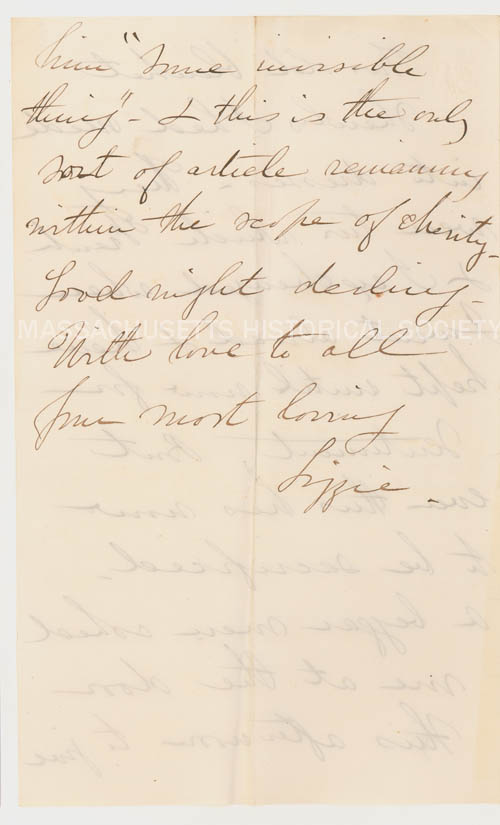 him "some invisible
thing" - & this is the only
sort of article remaining
within the scope of charity -
Good night darling -
MASSACHUSETTS HISTORICAL SOCIETY
With love to all
from most loving
Lizzie.